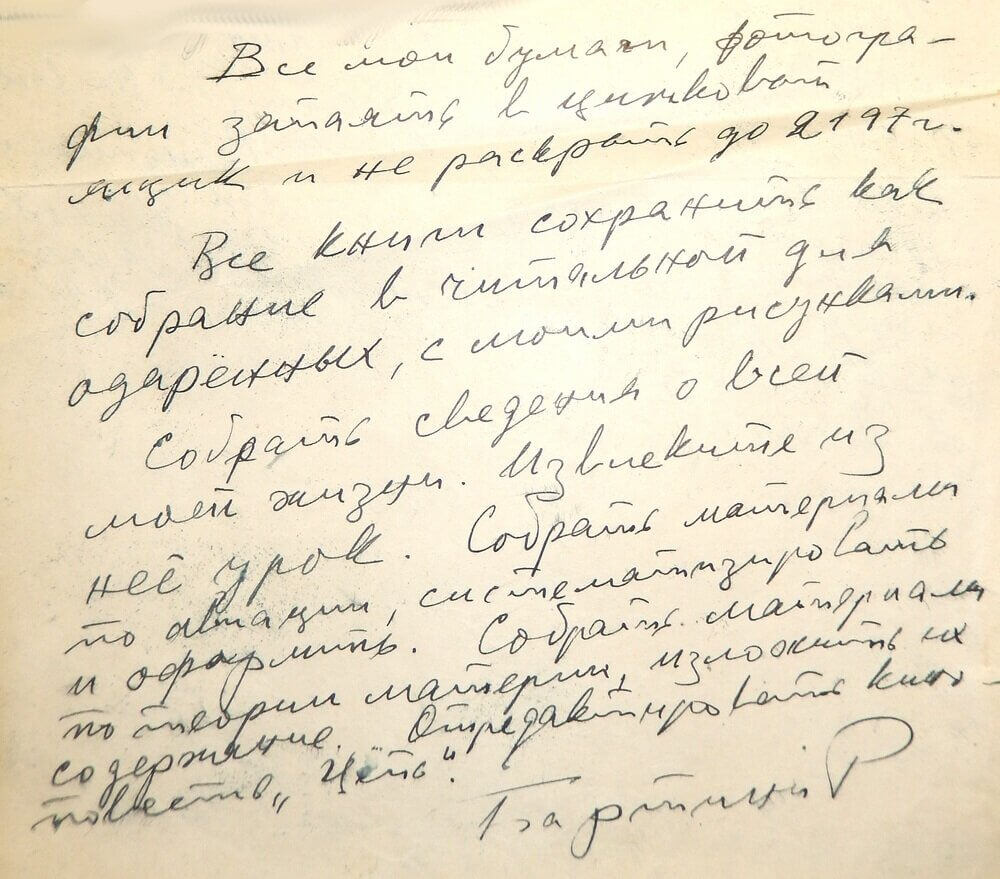 Все мои бумаги, фотогра-
фии запаять в цинковый
ящик и не раскрыть до 2197 г.
Все книги сохранить как
собрание в читальной для
одарённых, с моими рисунками.
Собрать сведения о всей
моей жизни. Извлеките из
неё урок. Собрать материалы
по авиации, систематизировать
и оформить. Собрать материалы
по теории материи, изложить их
содержание. Отредактировать кино-
повесть „Цепь".
Бартини Р